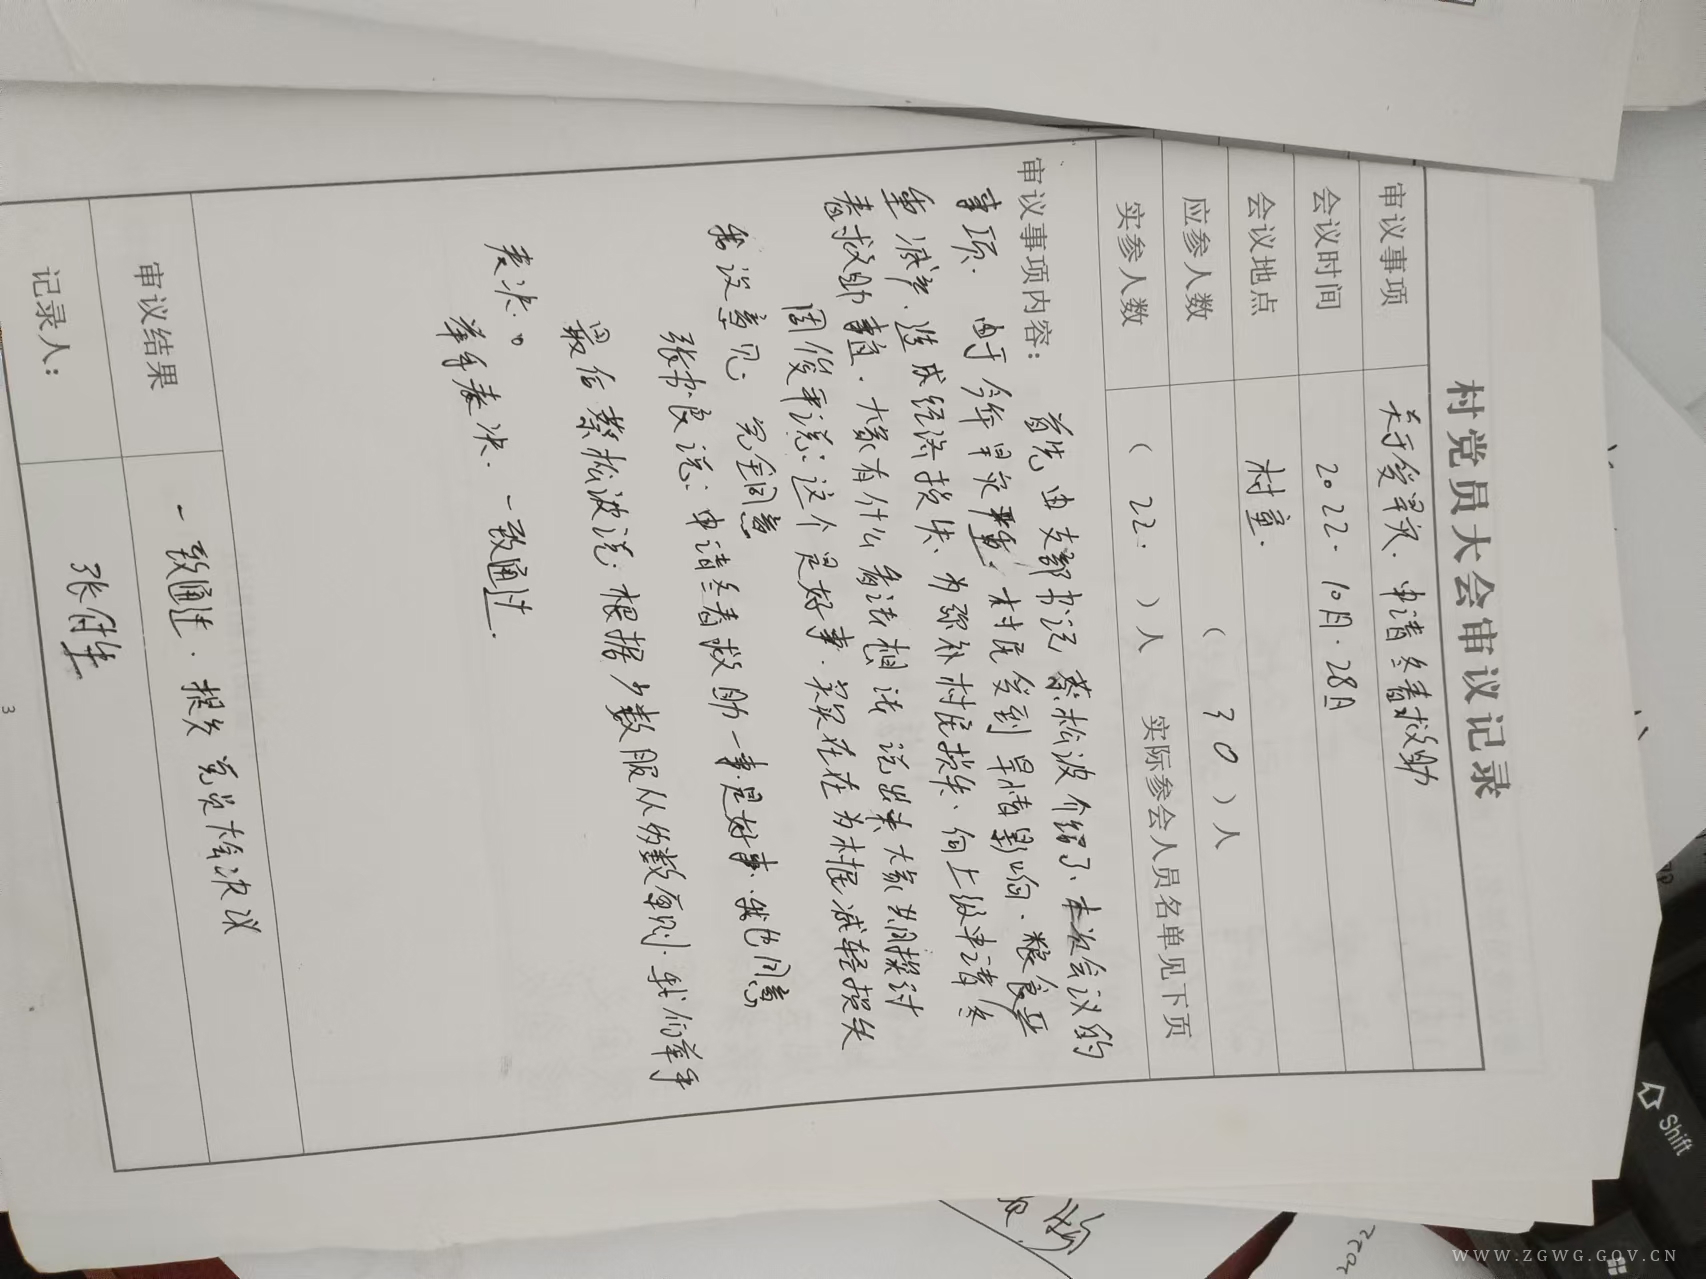 村党员大会审议记录
审议事项 关于受旱灾、申请冬春救助
会议时间 2022.10月.28日
会议地点 村室.
应参人数 （30）人
实参人数 （22.）人 实际参会人员名单见下页
审议事项内容：
首先由支部书记蔡松波介绍了、本次会议的
事项. 由于今年旱灾严重、村民受到旱情影响.粮食严
重减产.造成经济损失、为弥补村民损失.向上级申请冬
春救助 事宜.大家有什么看法想法说出来大家共同探讨
周俊平说：这个是好事.实在在为村民减轻损失
我没意见 完全同意
张书良说：申请冬春救助一事是好事.我也同意
最后蔡松波说：根据少数服从多数原则.我们举手
表决。
举手表决.一致通过.
审议结果 一致通过.提交党员大会决议
记录人：
3
Shift
2022
WWW.ZGWG.GOV.CN